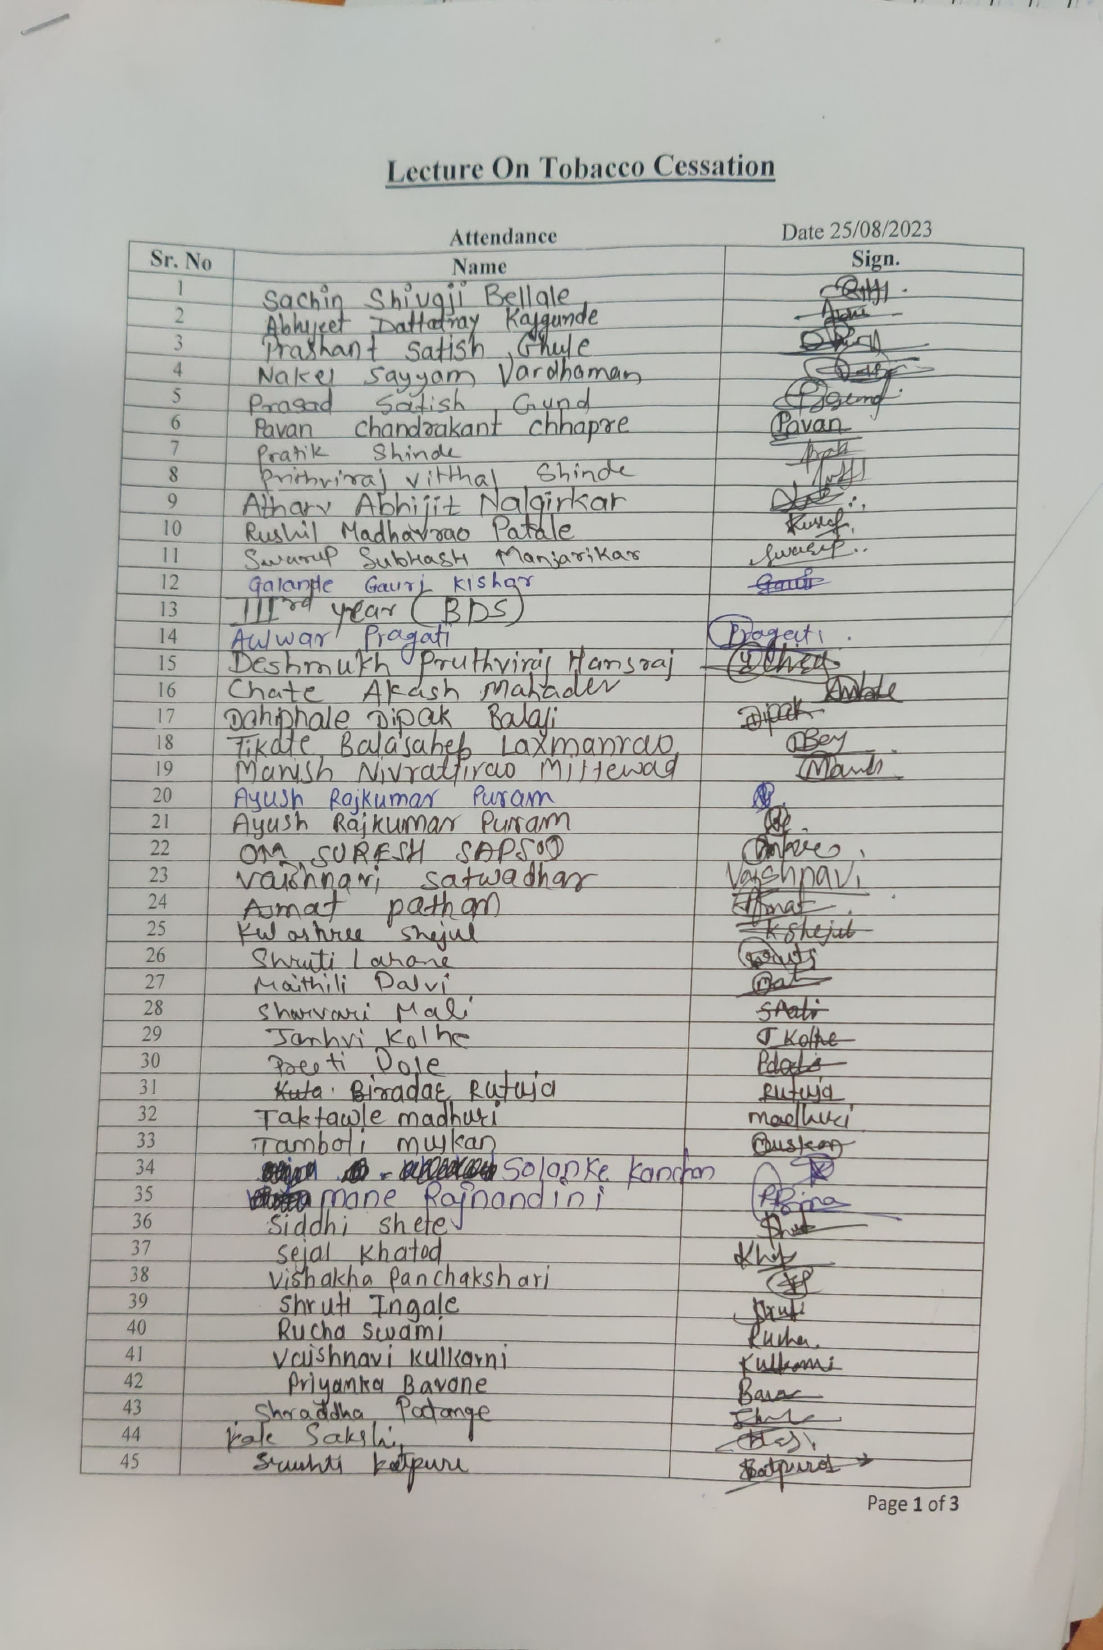 Lecture On Tobacco Cessation
Attendance Date 25/08/2023
Sr. No Name Sign.
1 Sachin Shivaji Bellale
2 Abhijeet Dattatray Kajgunde
3 Prashant Satish Ghule
4 Nakel Sayyam Vardhaman
5 Prasad Satish Gund
6 Pavan Chandrakant Chhapre Pavan
7 Pratik Shinde
8 Prithviraj Vitthal Shinde
9 Atharv Abhijit Nalgirkar
10 Rushil Madhavrao Patale
11 Swarup Subhash Manjarikar Swarup
12 Galande Gauri Kishar Gauri
13 IIIrd year (BDS)
14 Awwar Pragati Pragati
15 Deshmukh Pruthviraj Hansraj
16 Chate Akash Mahadev
17 Dahiphale Dipak Balaji Dipak
18 Tikate Balasaheb Laxmanrao
19 Manish Nivrattirao Mittewad
20 Ayush Rajkumar Puram
21 Ayush Rajkumar Puram
22 OM SURESH
23 Vaishnavi Satwadhar Vaishnavi
24 Asmat pathan
25 shejul K Shejul
26 Shruti Lahane
27 Maithili Dalvi
28 Sharvari Mali
29 Janhvi Kolhe J Kolhe
30 Preeti Dole
31 Biradar Rutuja Rutuja
32 Taktawle madhuri madhuri
33 Tamboli muskan Muskan
34 Solanke Kanchan
35 mane Rajnandini
36 Siddhi shete
37 Sejal Khatod
38 Vishakha Panchakshari
39 Shruti Ingale Shruti
40 Rucha Swami Rucha
41 Vaishnavi Kulkarni Kulkarni
42 Priyanka Bavone
43 Shraddha Patange
44 Kale Sakshi
45 Srushti Katpure
Page 1 of 3